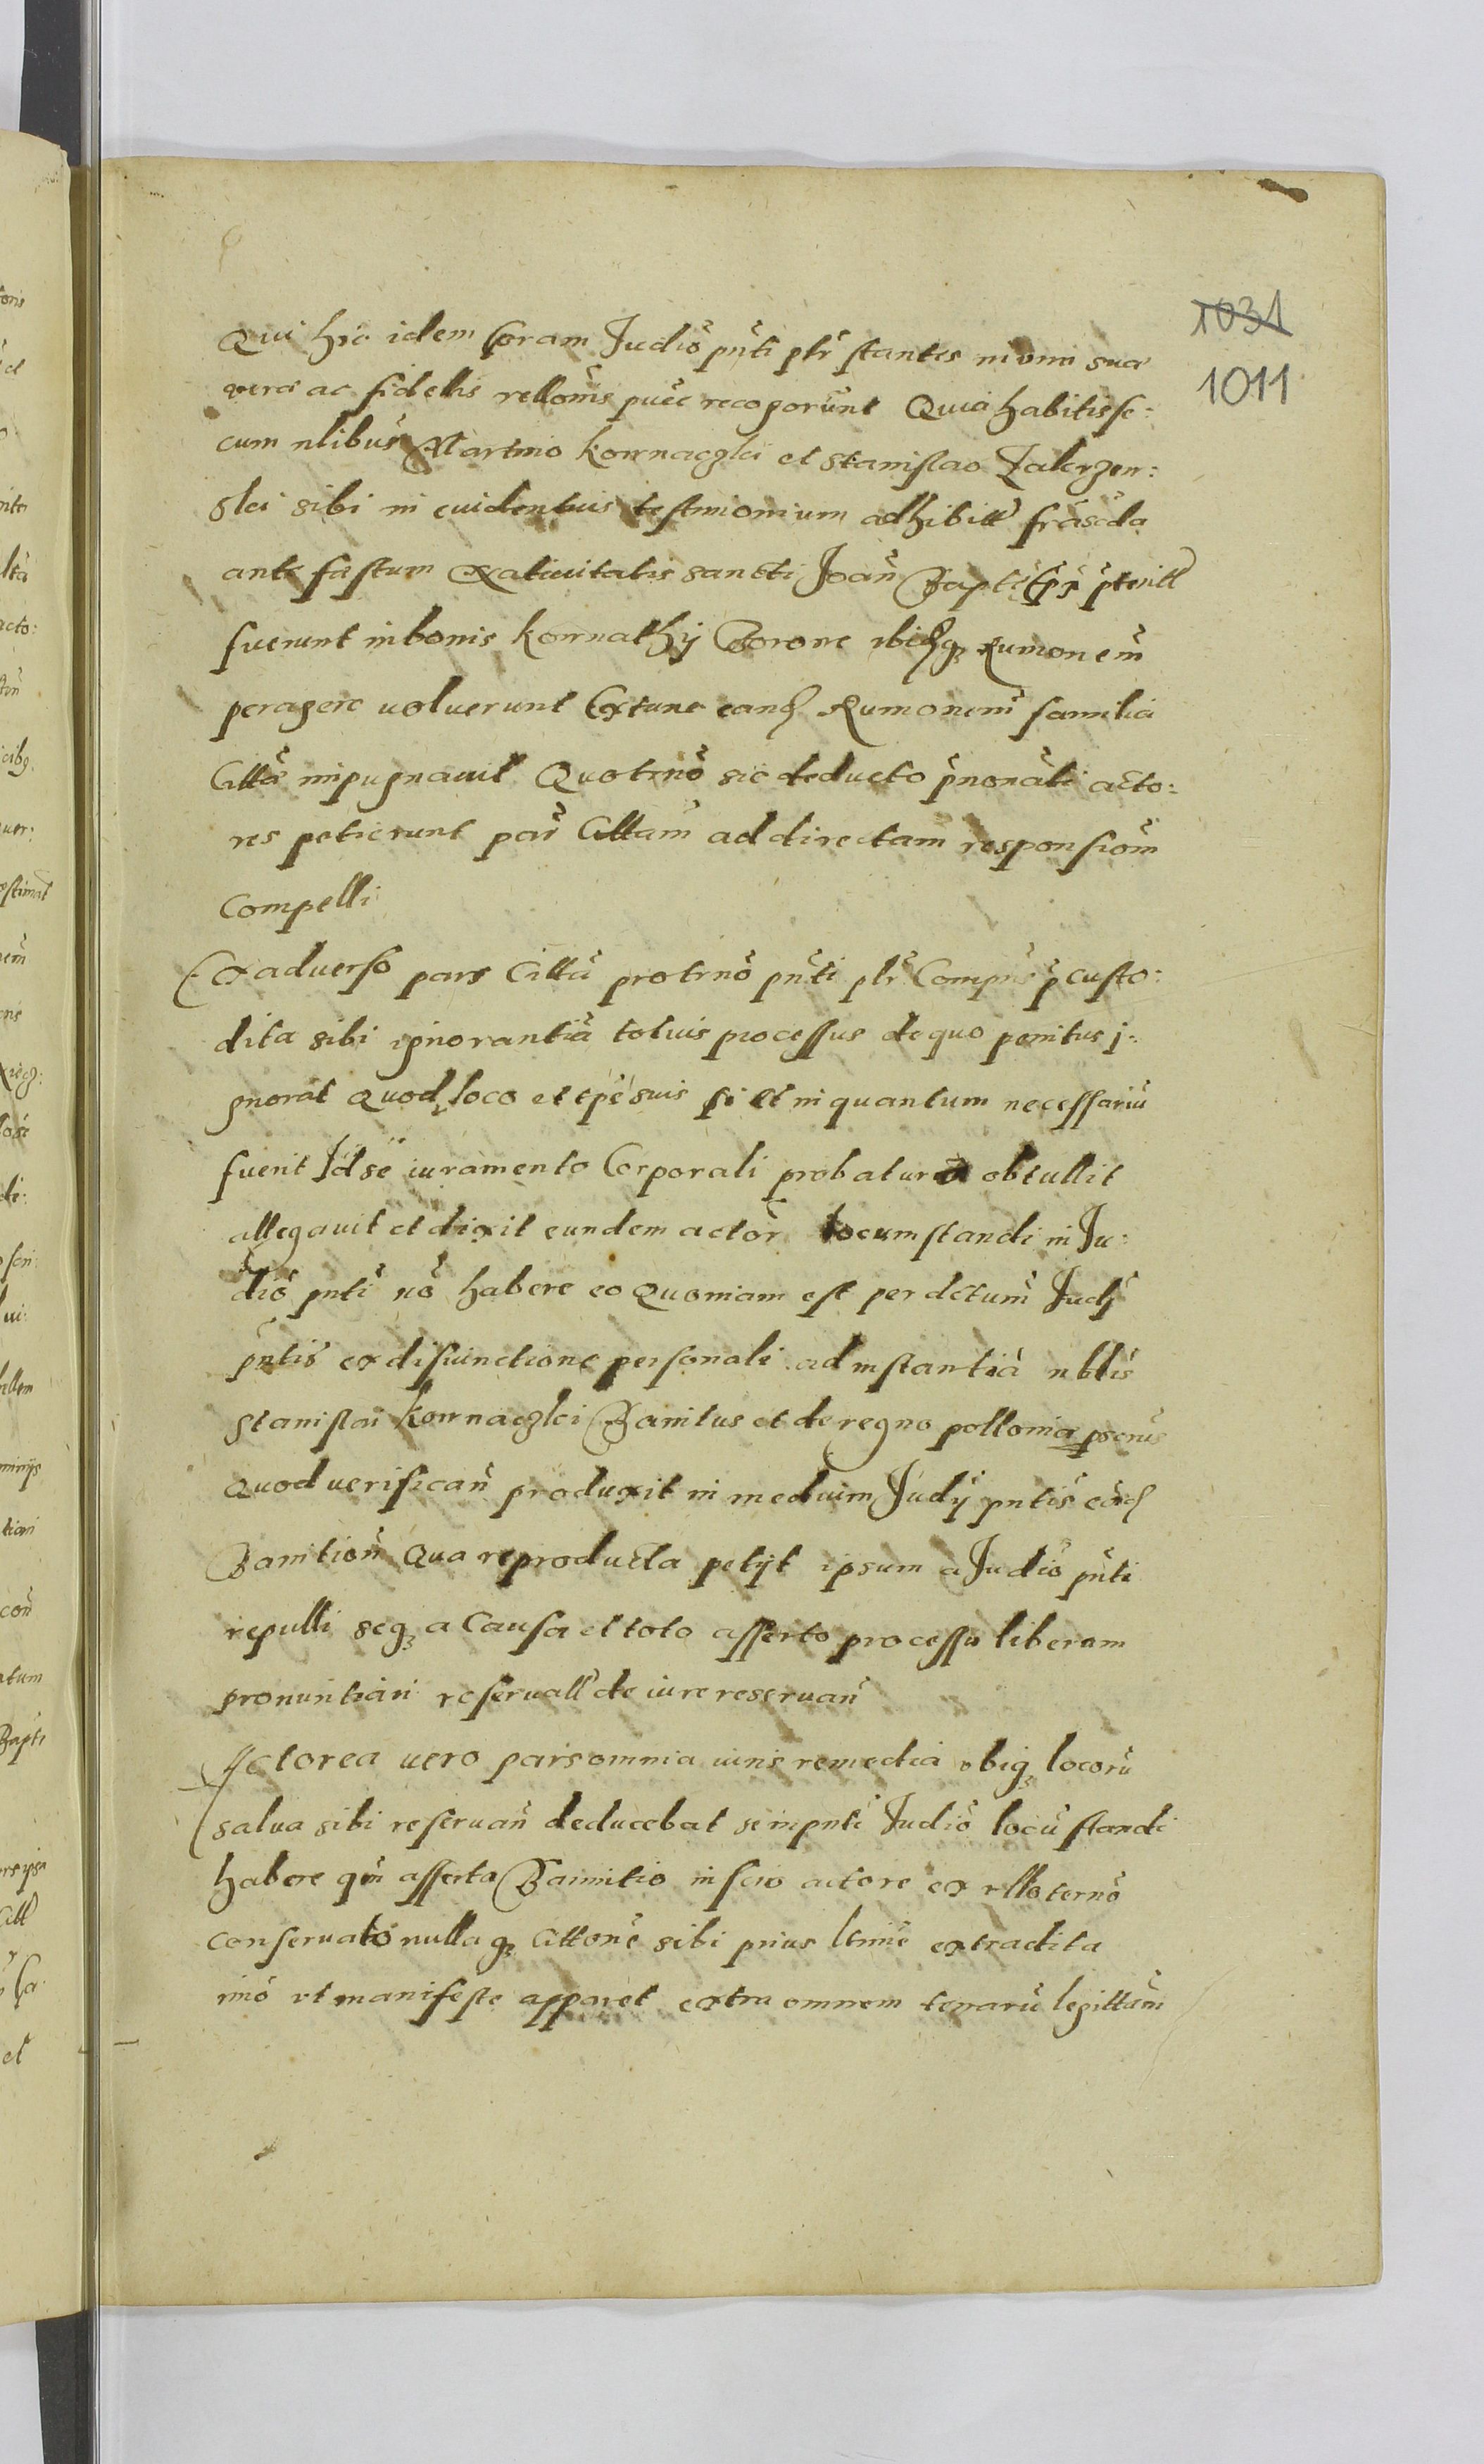 1031
1011
Qui hic idem coram Judiō pn̄ti plr̄ stantes in vim sua
vera ac fidelis rellonis puēe recogorūnt Quia habitis se:
cum nlibus Martino Kownaczki et Stanislao Zakrzew:
ski sibi in euidentius testimonium adhibitt fr̄a scda
ante festum Natiuitatis sancti Joan̄ Baptē pr̄ pterittᵒ
fuerunt in bonis Kownathÿ Borowe ibiq Rumonem̄
peragere uoluerunt Extunc eand Rumonem̄ familia
Cittā impugnauit Quo trnō sic deducto pnonāti acto:
res petierunt par̄ Cittam̄ ad directam responsiom̄
Compelli
Ex aduerso pars Cittā pro trnō pn̄ti plr̄ Compns p̄custo:
dita sibi ignorantiā totius processus de quo penitus j:
gnorat Quod loco et tpē suis si et in quantum necessariū
fuerit Id sē iuramento Corporali probaturā obtullit
allegauit et dixit eundem actor̄ locum standi in Ju:
diō pntī nō habere eo Quoniam est per dctum̄ Judÿ
pntis ex disiunctione personali ad instantiā nblis
Stanislai Kownaczki Banitus et de regno polloniae pscrus
Quod uerifican̄ produxit in medium Judÿ pntis eād
Banition̄ Qua reproducta petÿt ipsum a Judiō pn̄ti
repulli seq a Causa et toto asserto processu liberam
pronuntiari reseruatt de iure reseruan̄
Actorea uero pars omnia iuris remedia vbiq locorū
salua sibi reseruan̄ deducebat se in pntī Judiō locū standi
habere qm̄ asserta Bannitio in scio actore ex rllo ternō
conseruatō nulla q Cittone sibi prius ltimē extradita
imō vt manifeste apparet extra omnem tenorū legittām